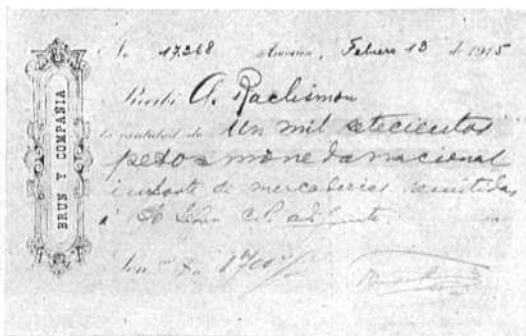 BRUN Y COMPAÑIA
No 17.268 Asuncion, Febrero 13 de 1915
Recibí A. Rachismon
la cantidad de un mil setecientos
pesos moneda nacional
importe de mercaderias remitidas
á
Son 1700